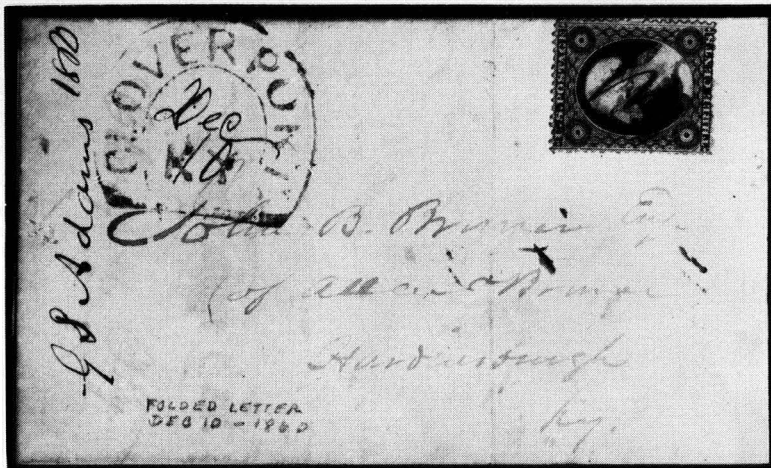 G S Adams 1860
CLOVERPORT
Dec
10
KY
John B. Bruner Esq.
(of Allen & Bruner
Hardinsburgh
Ky.
FOLDED LETTER
DEC 10 - 1860
THREE CENTS